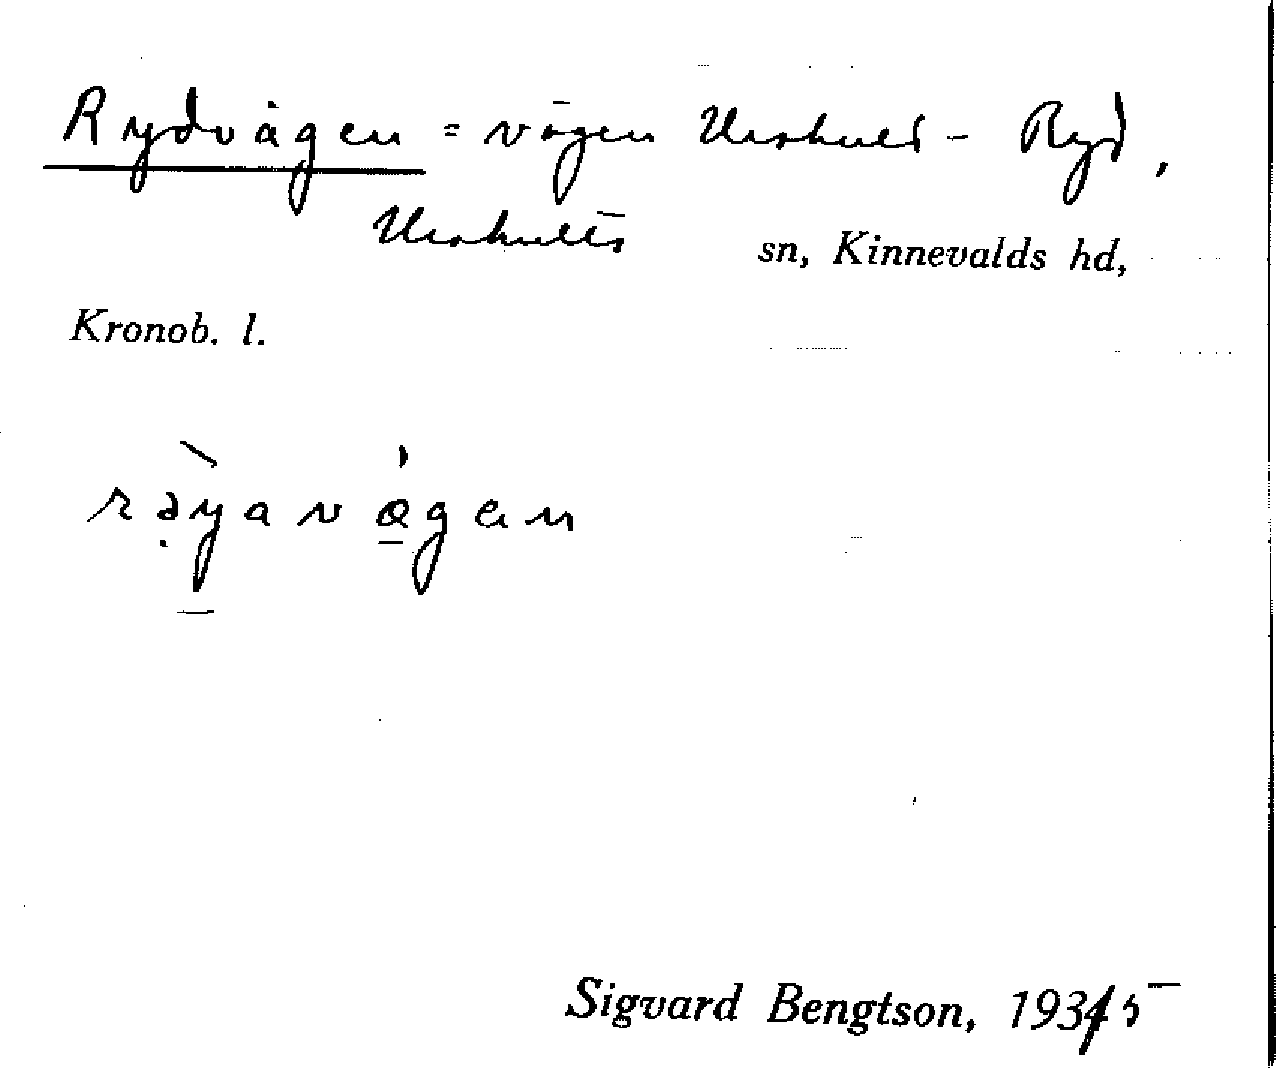 Rydvägen = vägen Urshult - Ryd,
Urshults sn, Kinnevalds hd,
Kronob. l.
Sigvard Bengtson, 1935